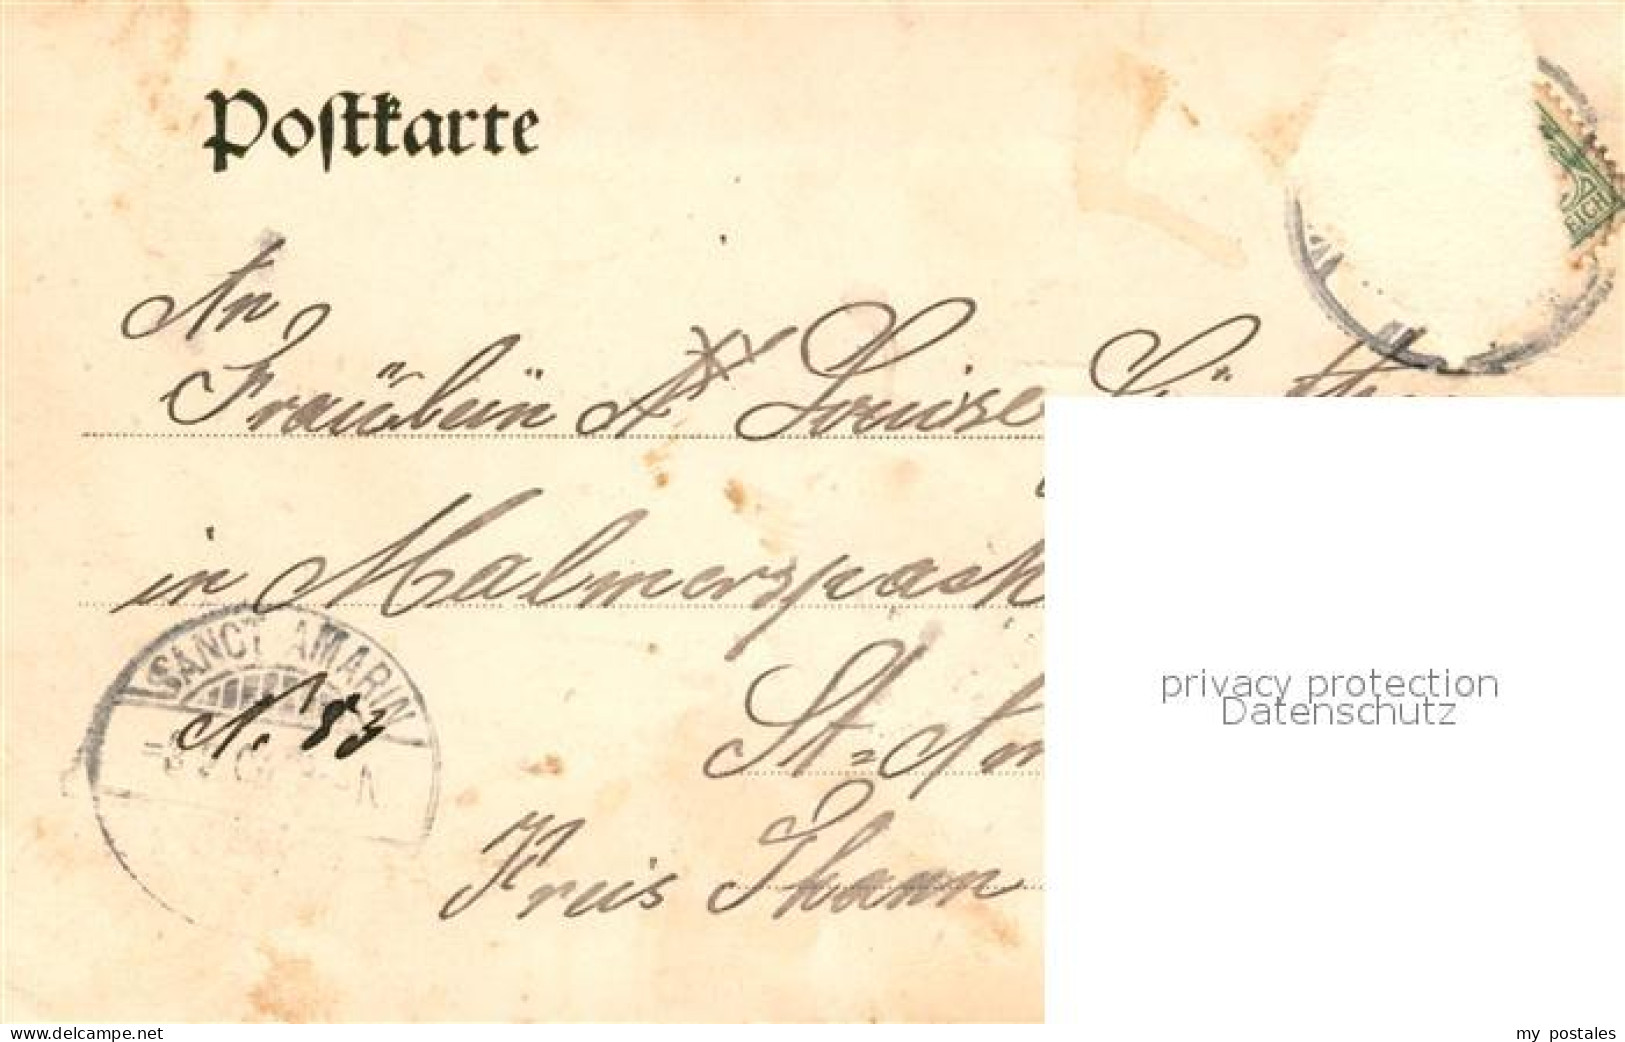 Postkarte
REICH
An
Fräulein Louise
in Malmerspach
SANCT AMARIN
N. 83
St=Am
Kreis Thann
privacy protection
Datenschutz
www.delcampe.net
my postales